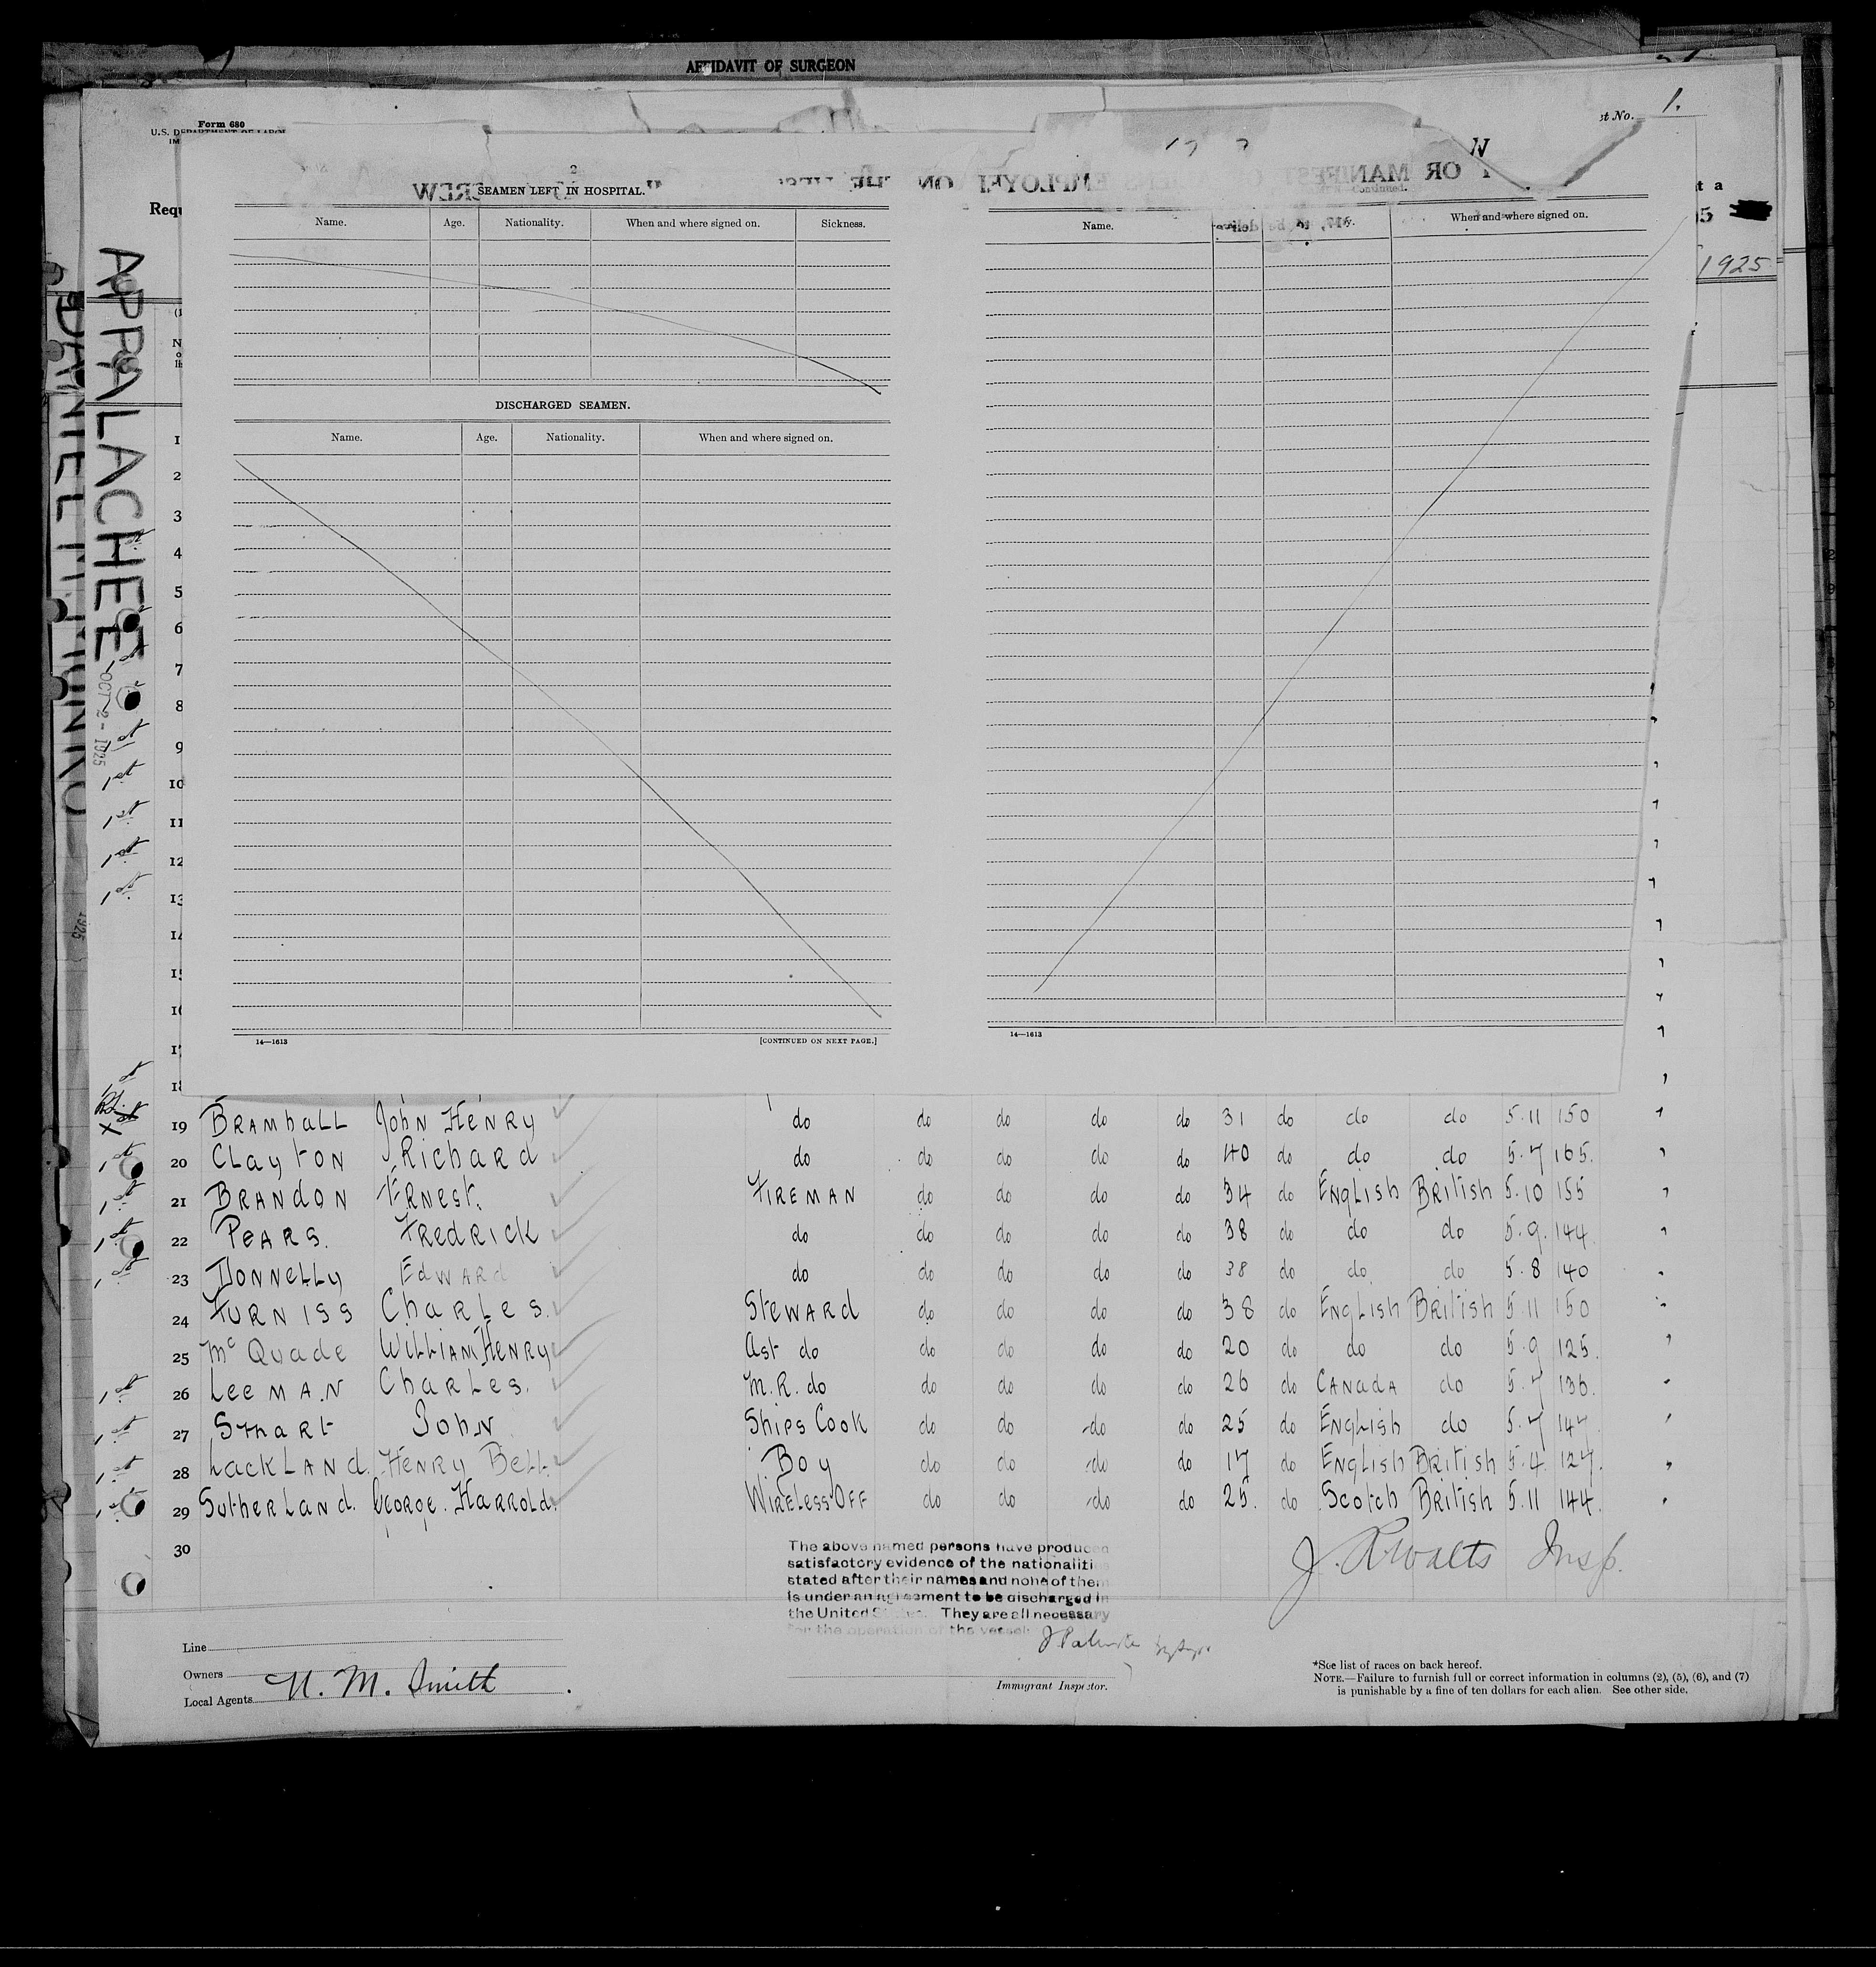 AFFIDAVIT OF SURGEON
Form 680
U.S. DEPARTMENT OF LABOR
st No. 1.
Requ
1925
APPALACHEE
OCT 2 - 1925
2
SEAMEN LEFT IN HOSPITAL.
Name. Age. Nationality. When and where signed on. Sickness.
DISCHARGED SEAMEN.
Name. Age. Nationality. When and where signed on.
14—1613 [CONTINUED ON NEXT PAGE.]
Continued.
Name. When and where signed on.
14—1613
1
2
3
4
5
6
7
8
9
10
11
12
13
19 Bramhall John Henry do do do do do 31 do do do 5.11 150
20 Clayton Richard do do do do do 40 do do do 5.7 165.
21 Brandon Ernest. Fireman do do do do 34 do English British 5.10 155
22 Pears. Fredrick do do do do do 38 do do do 5.9. 144
23 Donnelly Edward do do do do do 38 do do do 5.8 140
24 Furniss Charles. Steward do do do do 38 do English British 5.11 150
25 McQuade William Henry Ast do do do do do 20 do do do 5.9 125.
26 Leeman Charles. M.R. do do do do do 26 do Canada do 5.7 136.
27 Smart John Ships Cook do do do do 25 do English do 5.7 147
28 Lackland. Henry Bell. Boy do do do do 17 do English British 5.4. 127.
29 Sutherland. George. Harrold. Wireless Off do do do do 25. do Scotch British 5.11 144.
30
The above named persons have produced
satisfactory evidence of the nationalities
stated after their names and none of them
is under an agreement to be discharged in
the United States. They are all necessary
for the operation of the vessel.
Insp.
Line
Owners
Local Agents N. M. Smith
Immigrant Inspector.
*See list of races on back hereof.
NOTE.—Failure to furnish full or correct information in columns (2), (5), (6), and (7)
is punishable by a fine of ten dollars for each alien. See other side.